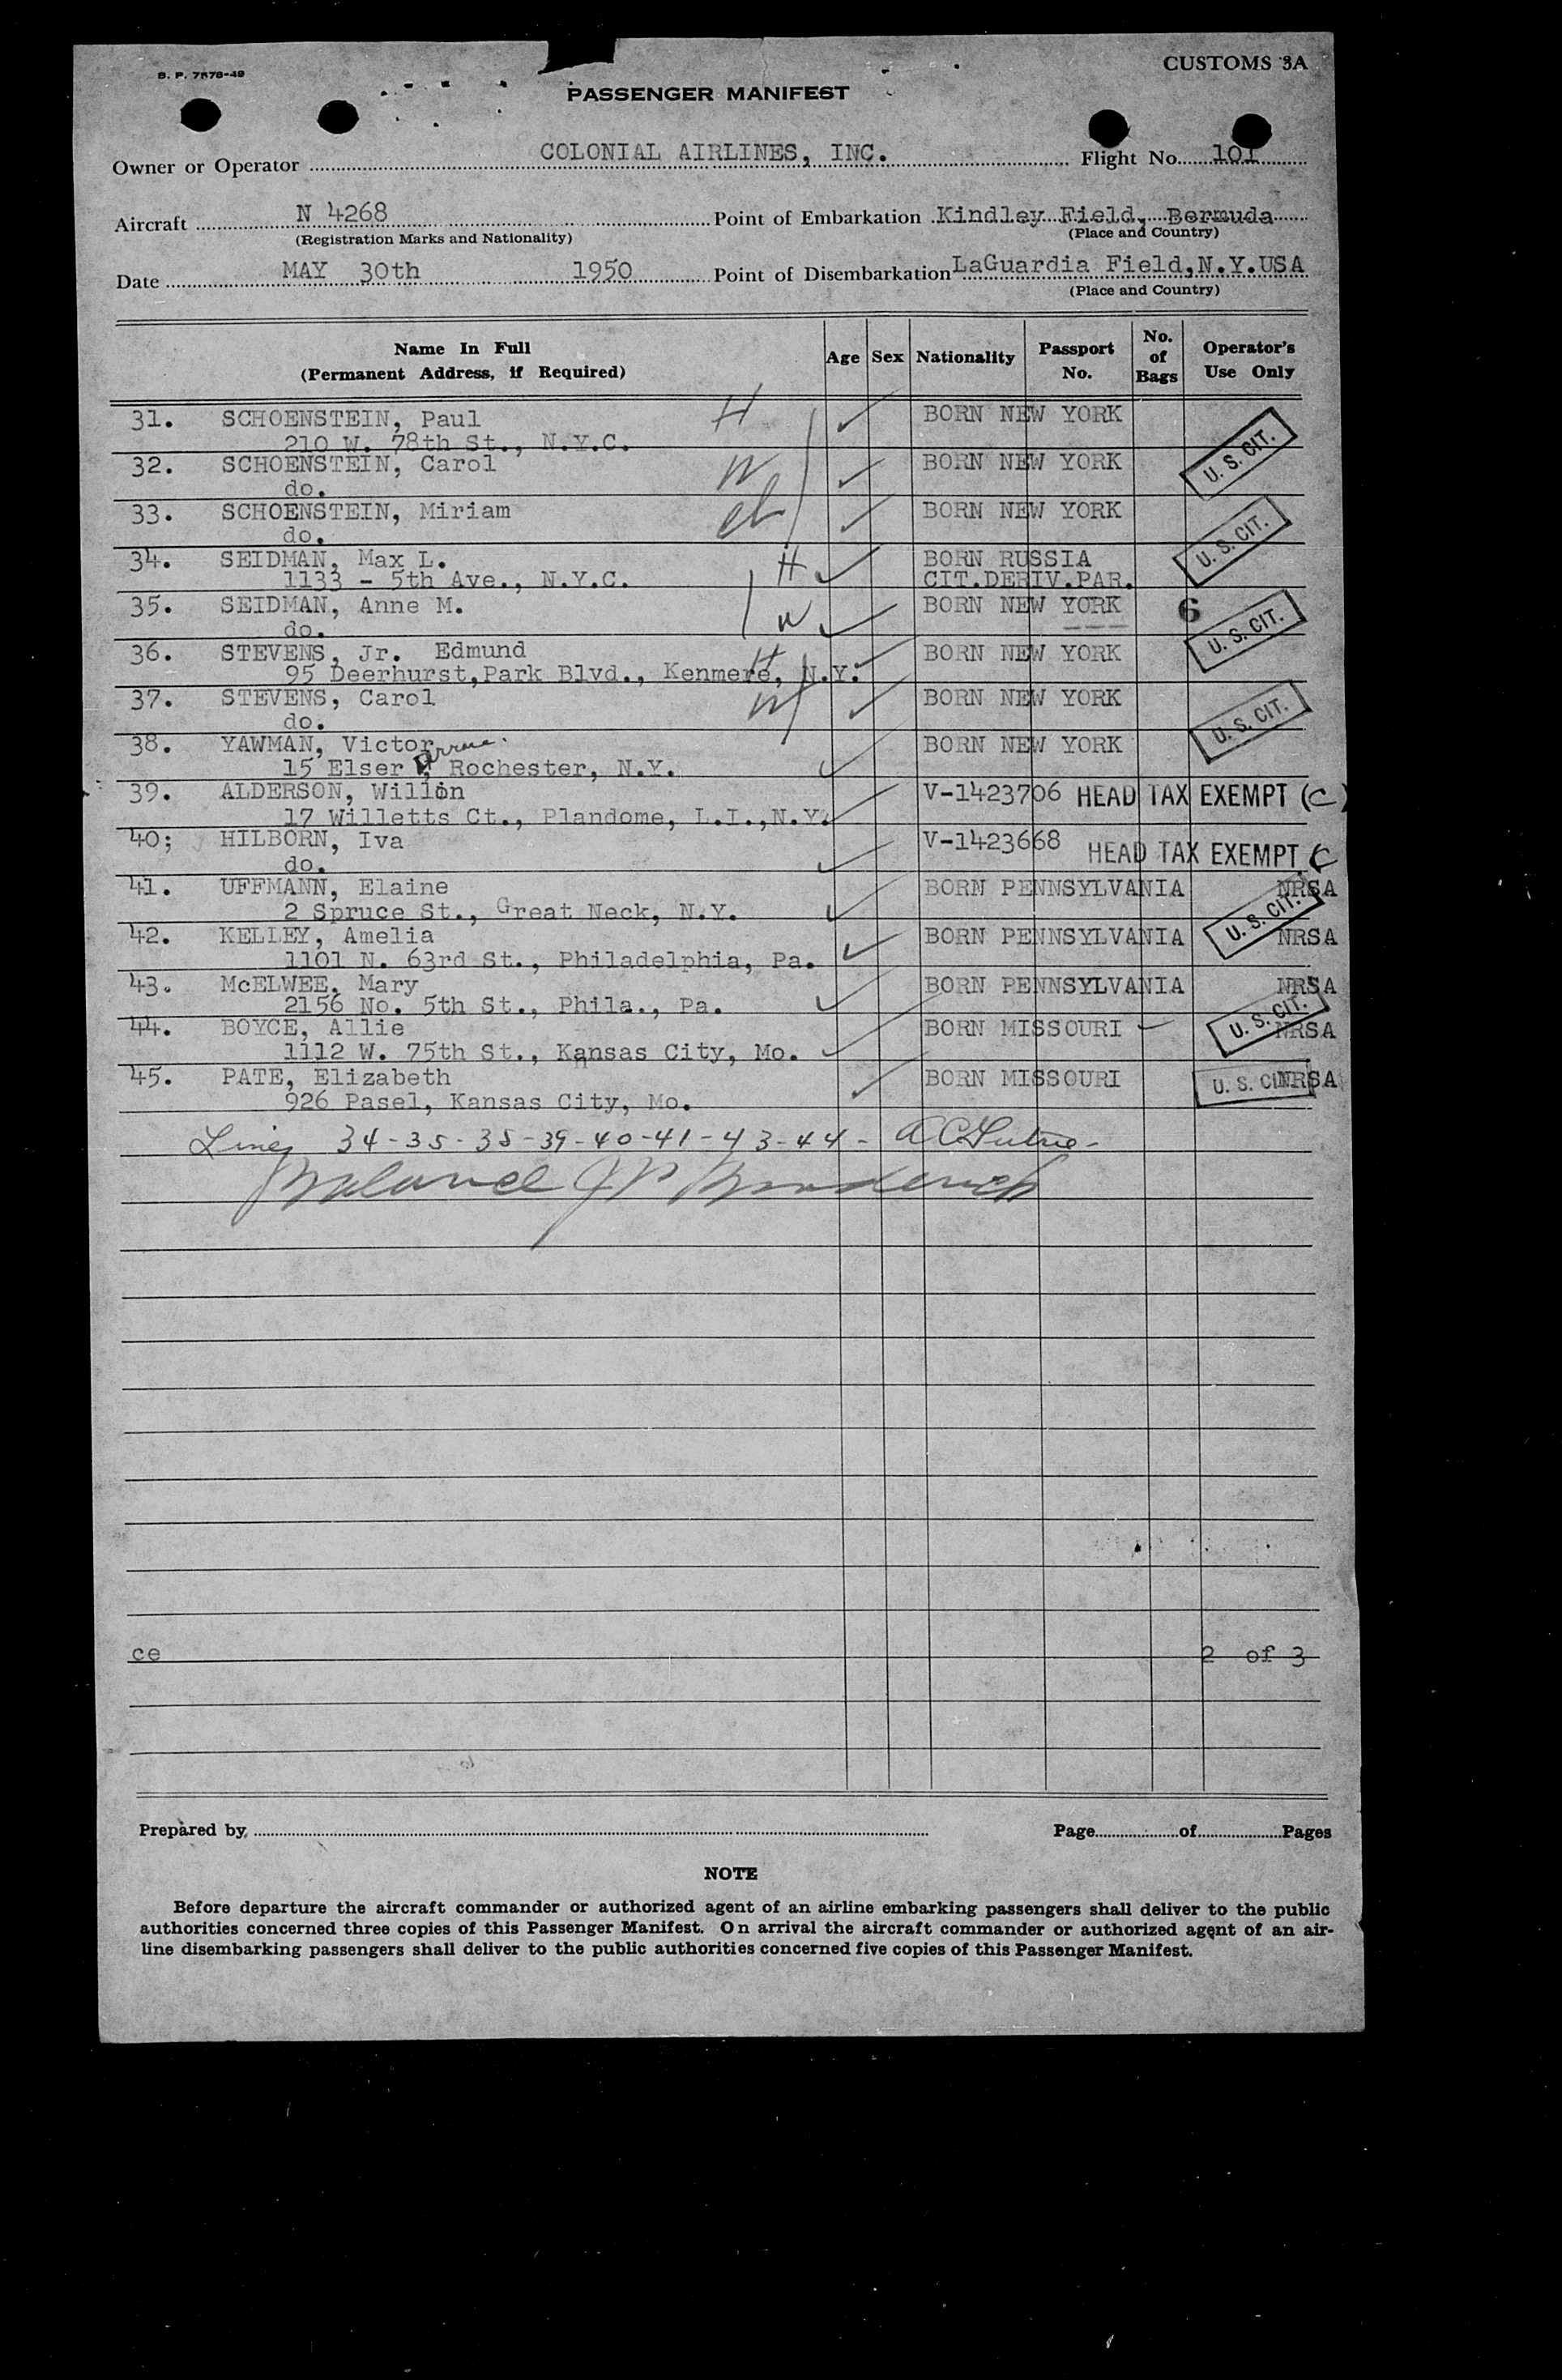 B. P. 7678-49
CUSTOMS 3A
PASSENGER MANIFEST
Owner or Operator COLONIAL AIRLINES, INC. Flight No. 101
Aircraft N 4268 Point of Embarkation Kindley Field, Bermuda
(Registration Marks and Nationality) (Place and Country)
Date MAY 30th 1950 Point of Disembarkation LaGuardia Field, N.Y. USA
(Place and Country)
Name In Full (Permanent Address, if Required) Age Sex Nationality Passport No. No. of Bags Operator's Use Only
31. SCHOENSTEIN, Paul H BORN NEW YORK
210 W. 78th St., N.Y.C. U. S. CIT.
32. SCHOENSTEIN, Carol W BORN NEW YORK
do.
33. SCHOENSTEIN, Miriam ch BORN NEW YORK
do. U. S. CIT.
34. SEIDMAN, Max L. H BORN RUSSIA
1133 - 5th Ave., N.Y.C. CIT.DERIV.PAR.
35. SEIDMAN, Anne M. W BORN NEW YORK 6
do. U. S. CIT.
36. STEVENS, Jr. Edmund H BORN NEW YORK
95 Deerhurst,Park Blvd., Kenmere, N.Y.
37. STEVENS, Carol W BORN NEW YORK
do. U. S. CIT.
38. YAWMAN, Victor BORN NEW YORK
15 Elser Rochester, N.Y.
39. ALDERSON, Willön V-1423706 HEAD TAX EXEMPT (C)
17 Willetts Ct., Plandome, L.I.,N.Y.
40; HILBORN, Iva V-1423668 HEAD TAX EXEMPT C
do.
41. UFFMANN, Elaine BORN PENNSYLVANIA NRSA
2 Spruce St., Great Neck, N.Y. U. S. CIT.
42. KELLEY, Amelia BORN PENNSYLVANIA NRSA
1101 N. 63rd St., Philadelphia, Pa.
43. McELWEE, Mary BORN PENNSYLVANIA NRSA
2156 No. 5th St., Phila., Pa. U. S. CIT.
44. BOYCE, Allie BORN MISSOURI NRSA
1112 W. 75th St., Kansas City, Mo.
45. PATE, Elizabeth BORN MISSOURI U. S. CIT. NRSA
926 Pasel, Kansas City, Mo.
Lines 34-35-38-39-40-41-43-44-
Balance J P Broderick
ce 2 of 3
Prepared by Page of Pages
NOTE
Before departure the aircraft commander or authorized agent of an airline embarking passengers shall deliver to the public
authorities concerned three copies of this Passenger Manifest. On arrival the aircraft commander or authorized agent of an air-
line disembarking passengers shall deliver to the public authorities concerned five copies of this Passenger Manifest.